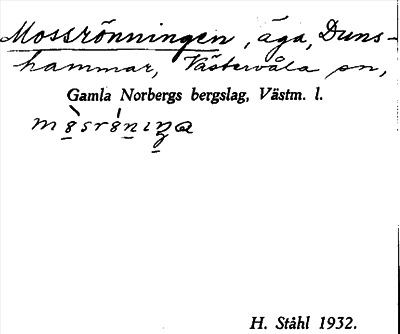 Mossrönningen, äga, Duns-
hammar, Västervåla sn,
Gamla Norbergs bergslag, Västm. l.
H. Ståhl 1932.